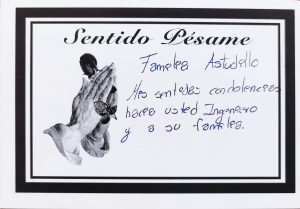 Sentido Pésame
Famelea Astudello
Mes sentedas condolencias
hacea usted Ingenero
y a su famelea.